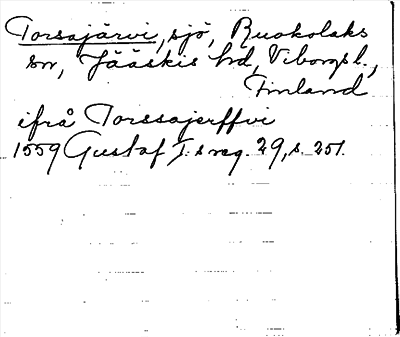 Torsajärvi, sjö, Ruokolaks
sn, Jääskis hd, Viborgs l.,
Finland
ifrå Torssajerffvi
1559 Gustaf I:s reg. 29, s. 251.